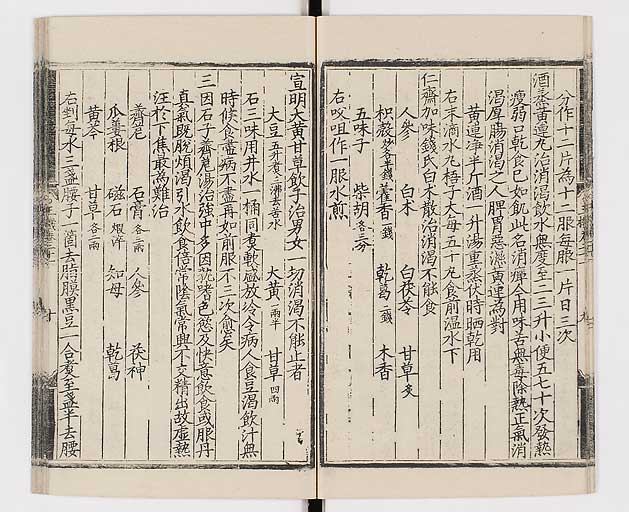 分作十二片為十二服每服一片日三次
酒蒸黃連丸治消渴飲水無度至二三升小便五七十次發熱
瘦弱口乾食已如飢此名消癉合用味苦無毒除熱正氣消
渴厚腸消渴之人脾胃惡濕黃連為對
黃連淨半斤酒一升湯重蒸伏時晒乾用
右末滴水丸梧子大每五十丸食前溫水下
仁齋加味錢氏白朮散治消渴不能食
人參 白朮 白茯苓 甘草炙
枳殼 藿香一錢 乾葛二錢 木香
五味子 柴胡各三分
右㕮咀作一服水煎
宣明大黃甘草飲子治男女一切消渴不能止者
大豆五升煮 大黃一兩半 甘草四兩
石三味用井水一桶同煮軟盛放冷令病人食豆渴飲汁無
時候食盡病不盡再如前服不三次愈矣
三因石子薺苨湯治強中多因就嗜色慾及快意飲食或服丹
真氣既脫煩渴引水飲食倍常陰氣常興不交精出故虛熱
注於下焦最為難治
薺苨 石膏各三兩 人參 茯神
瓜蔞根 磁石煅淬 知母 乾葛
黃芩 甘草各二兩
右剉每水三盞腰子一箇去脂膜黑豆一合煮至盞半去腰